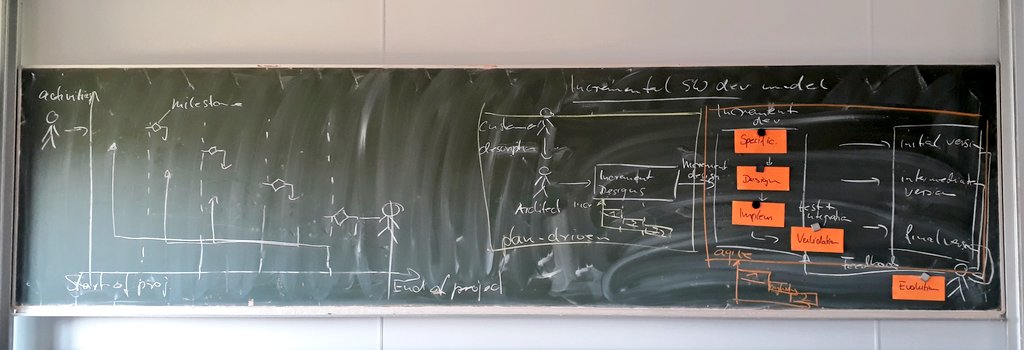 activities
milestone
Start of proj
End of project
Incremental SW dev model
Customer
description
Architect
Increment
Designs
Increment
design
incr
plan-driven
Increment
dev
Specific.
Design
Implem
Validation
test +
integratio
initial version
intermediate
version
final version
agile
Feedback
Evolution